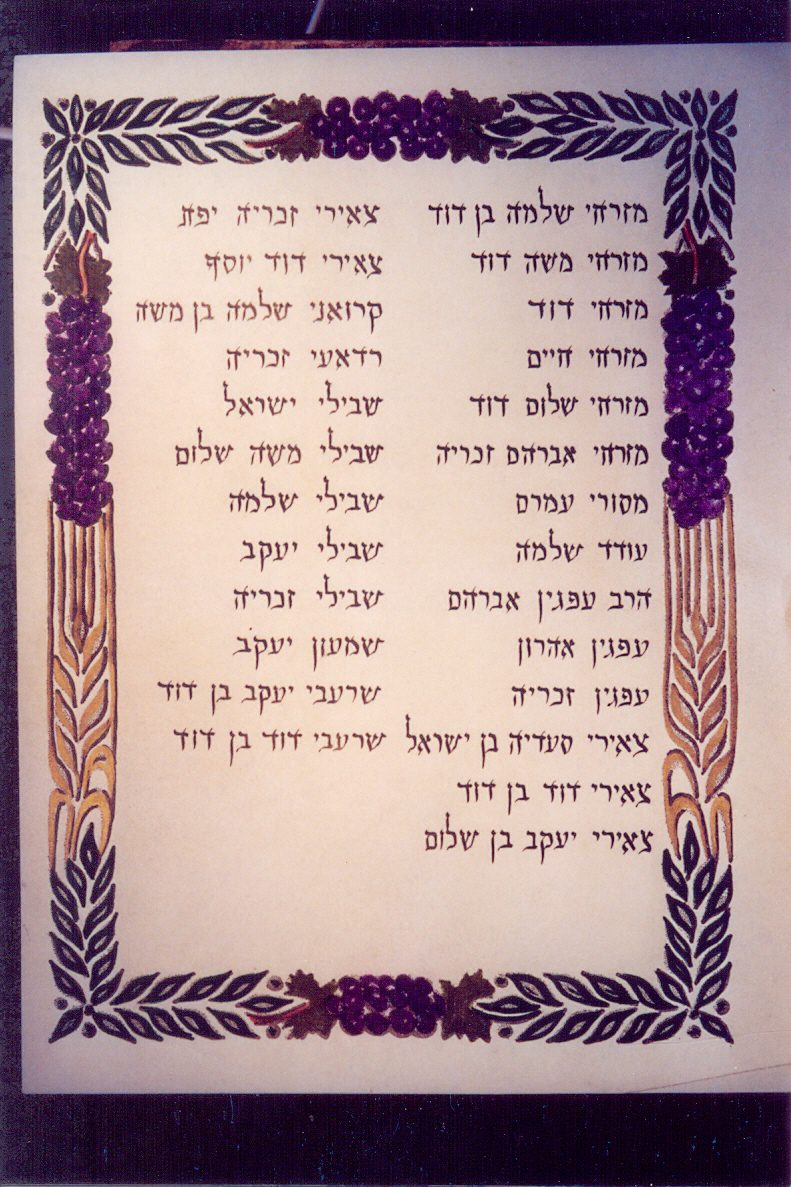 מזרחי שלמה בן דוד
מזרחי משה דוד
מזרחי דוד
מזרחי חיים
מזרחי שלום דוד
מזרחי אברהם זכריה
מסורי עמרם
עודד שלמה
הרב עפגין אברהם
עפגין אהרון
עפגין זכריה
צאירי סעדיה בן ישראל
צאירי דוד בן דוד
צאירי יעקב בן שלום
צאירי זכריה יפת
צאירי דוד יוסף
קרואני שלמה בן משה
רדאעי זכריה
שבילי ישראל
שבילי משה שלום
שבילי שלמה
שבילי יעקב
שבילי זכריה
שמעון יעקב
שרעבי יעקב בן דוד
שרעבי דוד בן דוד